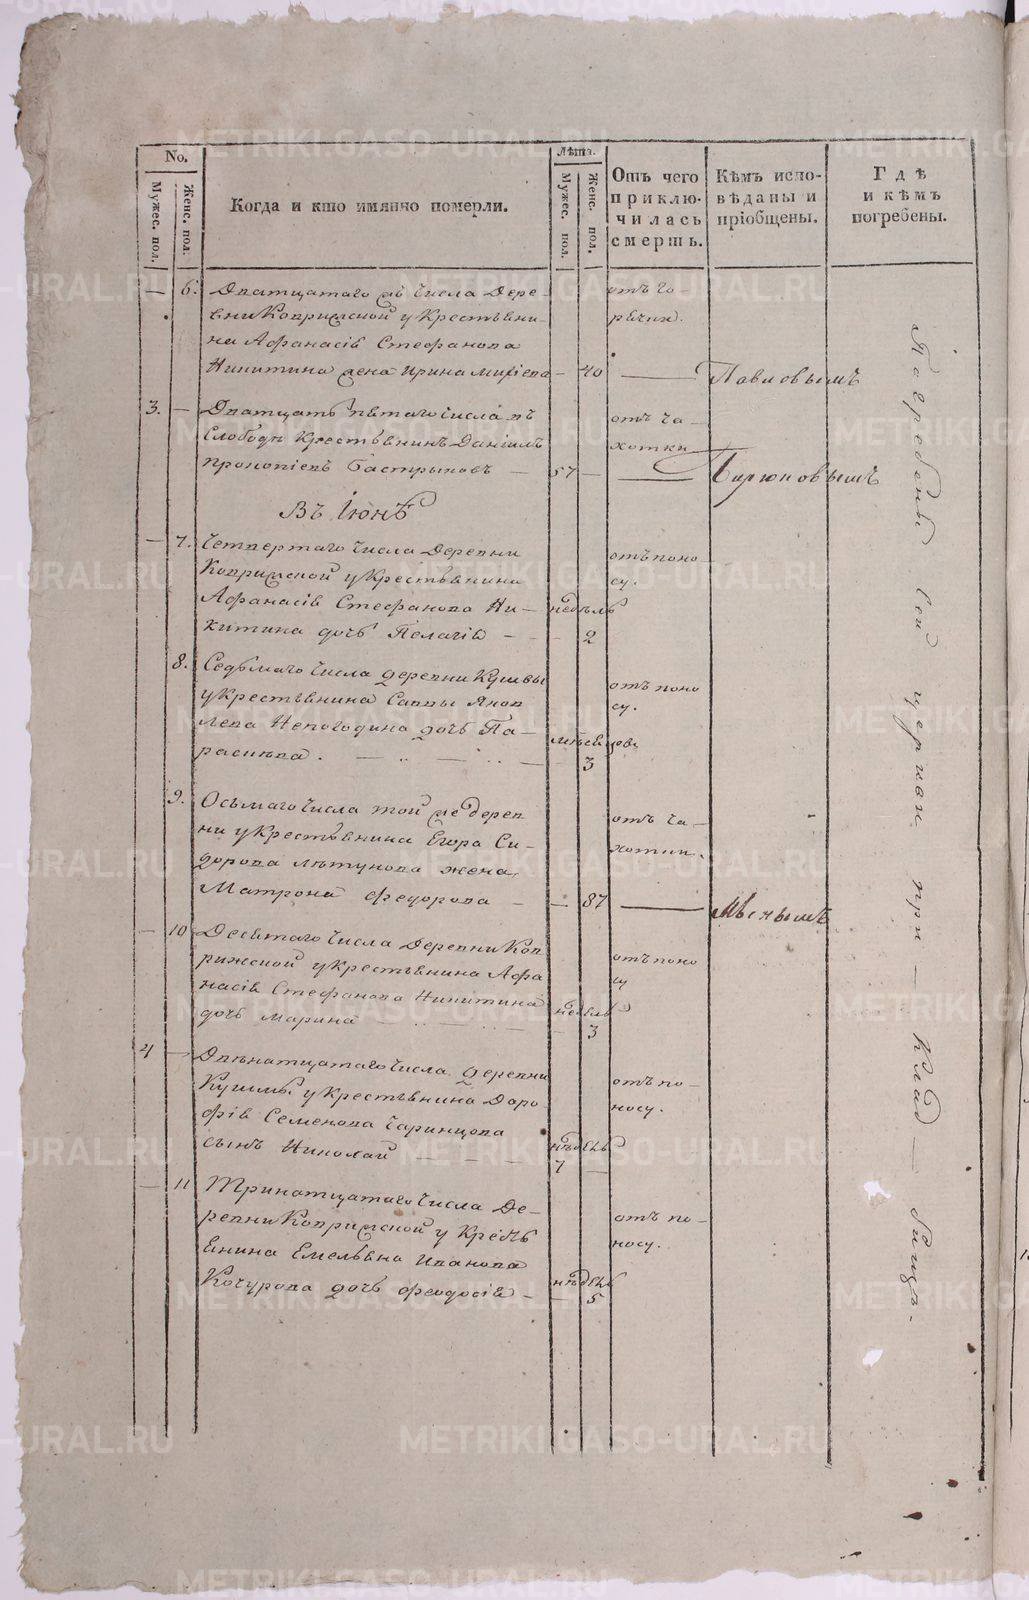 No.
Мужес. пол.
Женс. пол.
Когда и кто имянно померли.
Лѣта.
Мужес. пол.
Женс. пол.
Отъ чего
приклю-
чилась
смерть.
Кѣмъ испо-
вѣданы и
пріобщены.
Гдѣ
и кѣмъ
погребены.
— 6. Дватцатаго числа Дере-
вни у Крестьяни-
на Афанасія Стефанова
Никитина жена Ирина — 40
отъ го-
рячки.
Павловымъ
3. — Дватцать пятаго числа въ
Слободѣ Крестьянинъ Даніилъ
прокопіевъ Бастрыковъ — 57 —
отъ ча-
хотки
Бирюковымъ
Въ Іюнѣ
— 7. Четвертаго числа Деревни
у Крестьянина
Афанасія Стефанова Ни-
китина дочь Пелагія — — недѣль 2
отъ поно
су.
8. Седьмаго числа деревни Кушвы
у крестьянина Саввы Яков
лева Непогодина дочь Па-
расковья. — .. — .. — месяцовъ 3
отъ поно
су.
9. Осьмаго числа той же дерев
ни у крестьянина Егора Си-
дорова Летунова жена
Матрона Федорова — — 87
отъ ча-
хотки.
— 10 Десятаго числа Деревни
у крестьянина Афа
насія Стефанова Никитина
дочь Марина — .. — .. — недель 3
отъ поно
су
4 — Двенатцатаго числа деревни
у крестьянина Доро-
фія Семенова
сынъ Николай — — — недель 7 —
отъ по-
носу.
— 11 Тринатцатаго числа Де-
ревни у Кресть
янина Емельяна Иванова
Кочурова дочь Феодосія — недель — 5
отъ по-
носу.
Погребены сей церкви при — клад — бище.
METRIKI.GASO-URAL.RU